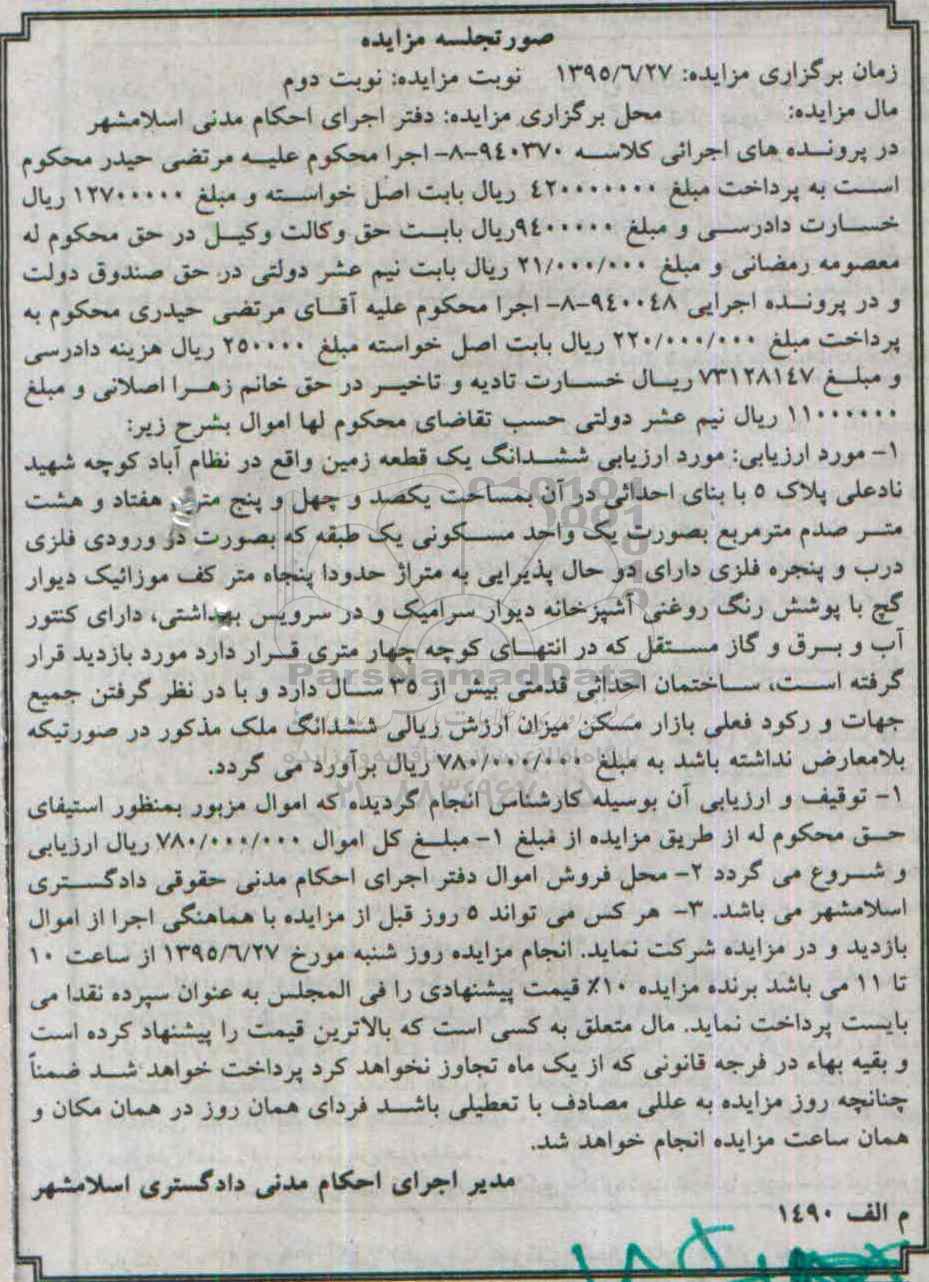 صورتجلسه مزایده
زمان برگزاری مزایده: ۱۳۹۵/۶/۲۷ نوبت مزایده: نوبت دوم
مال مزایده: محل برگزاری مزایده: دفتر اجرای احکام مدنی اسلامشهر
در پرونده های اجرائی کلاسه ۹۴۰۳۷۰-۸- اجرا محکوم علیه مرتضی حیدر محکوم
است به پرداخت مبلغ ۴۲۰۰۰۰۰۰۰ ریال بابت اصل خواسته و مبلغ ۱۲۷۰۰۰۰۰ ریال
خسارت دادرسی و مبلغ ۹۴۰۰۰۰۰ریال بابت حق وکالت وکیل در حق محکوم له
معصومه رمضانی و مبلغ ۲۱/۰۰۰/۰۰۰ ریال بابت نیم عشر دولتی در حق صندوق دولت
و در پرونده اجرایی ۹۴۰۰۴۸-۸- اجرا محکوم علیه آقای مرتضی حیدری محکوم به
پرداخت مبلغ ۲۲۰/۰۰۰/۰۰۰ ریال بابت اصل خواسته مبلغ ۲۵۰۰۰۰ ریال هزینه دادرسی
و مبلغ ۷۳۱۲۸۱۴۷ ریال خسارت تادیه و تاخیر در حق خانم زهرا اصلانی و مبلغ
۱۱۰۰۰۰۰۰ ریال نیم عشر دولتی حسب تقاضای محکوم لها اموال بشرح زیر:
۱- مورد ارزیابی: مورد ارزیابی ششدانگ یک قطعه زمین واقع در نظام آباد کوچه شهید
نادعلی پلاک ۵ با بنای احداثی در آن بمساحت یکصد و چهل و پنج متر و هفتاد و هشت
متر صدم مترمربع بصورت یک واحد مسکونی یک طبقه که بصورت دو ورودی فلزی
درب و پنجره فلزی دارای دو حال پذیرایی به متراژ حدودا پنجاه متر کف موزائیک دیوار
گچ با پوشش رنگ روغنی آشپزخانه دیوار سرامیک و در سرویس بهداشتی، دارای کنتور
آب و برق و گاز مستقل که در انتهای کوچه چهار متری قرار دارد مورد بازدید قرار
گرفته است، ساختمان احداثی قدمتی بیش از ۳۵ سال دارد و با در نظر گرفتن جمیع
جهات و رکود فعلی بازار مسکن میزان ارزش ریالی ششدانگ ملک مذکور در صورتیکه
بلامعارض نداشته باشد به مبلغ ۷۸۰/۰۰۰/۰۰۰ ریال برآورد می گردد.
۱- توقیف و ارزیابی آن بوسیله کارشناس انجام گردیده که اموال مزبور بمنظور استیفای
حق محکوم له از طریق مزایده از مبلغ ۱- مبلغ کل اموال ۷۸۰/۰۰۰/۰۰۰ ریال ارزیابی
و شروع می گردد ۲- محل فروش اموال دفتر اجرای احکام مدنی حقوقی دادگستری
اسلامشهر می باشد. ۳- هر کس می تواند ۵ روز قبل از مزایده با هماهنگی اجرا از اموال
بازدید و در مزایده شرکت نماید. انجام مزایده روز شنبه مورخ ۱۳۹۵/۶/۲۷ از ساعت ۱۰
تا ۱۱ می باشد برنده مزایده ۱۰٪ قیمت پیشنهادی را فی المجلس به عنوان سپرده نقدا می
بایست پرداخت نماید. مال متعلق به کسی است که بالاترین قیمت را پیشنهاد کرده است
و بقیه بهاء در فرجه قانونی که از یک ماه تجاوز نخواهد کرد پرداخت خواهد شد ضمناً
چنانچه روز مزایده به عللی مصادف با تعطیلی باشد فردای همان روز در همان مکان و
همان ساعت مزایده انجام خواهد شد.
مدیر اجرای احکام مدنی دادگستری اسلامشهر
م الف ۱۴۹۰
ParsNamadData